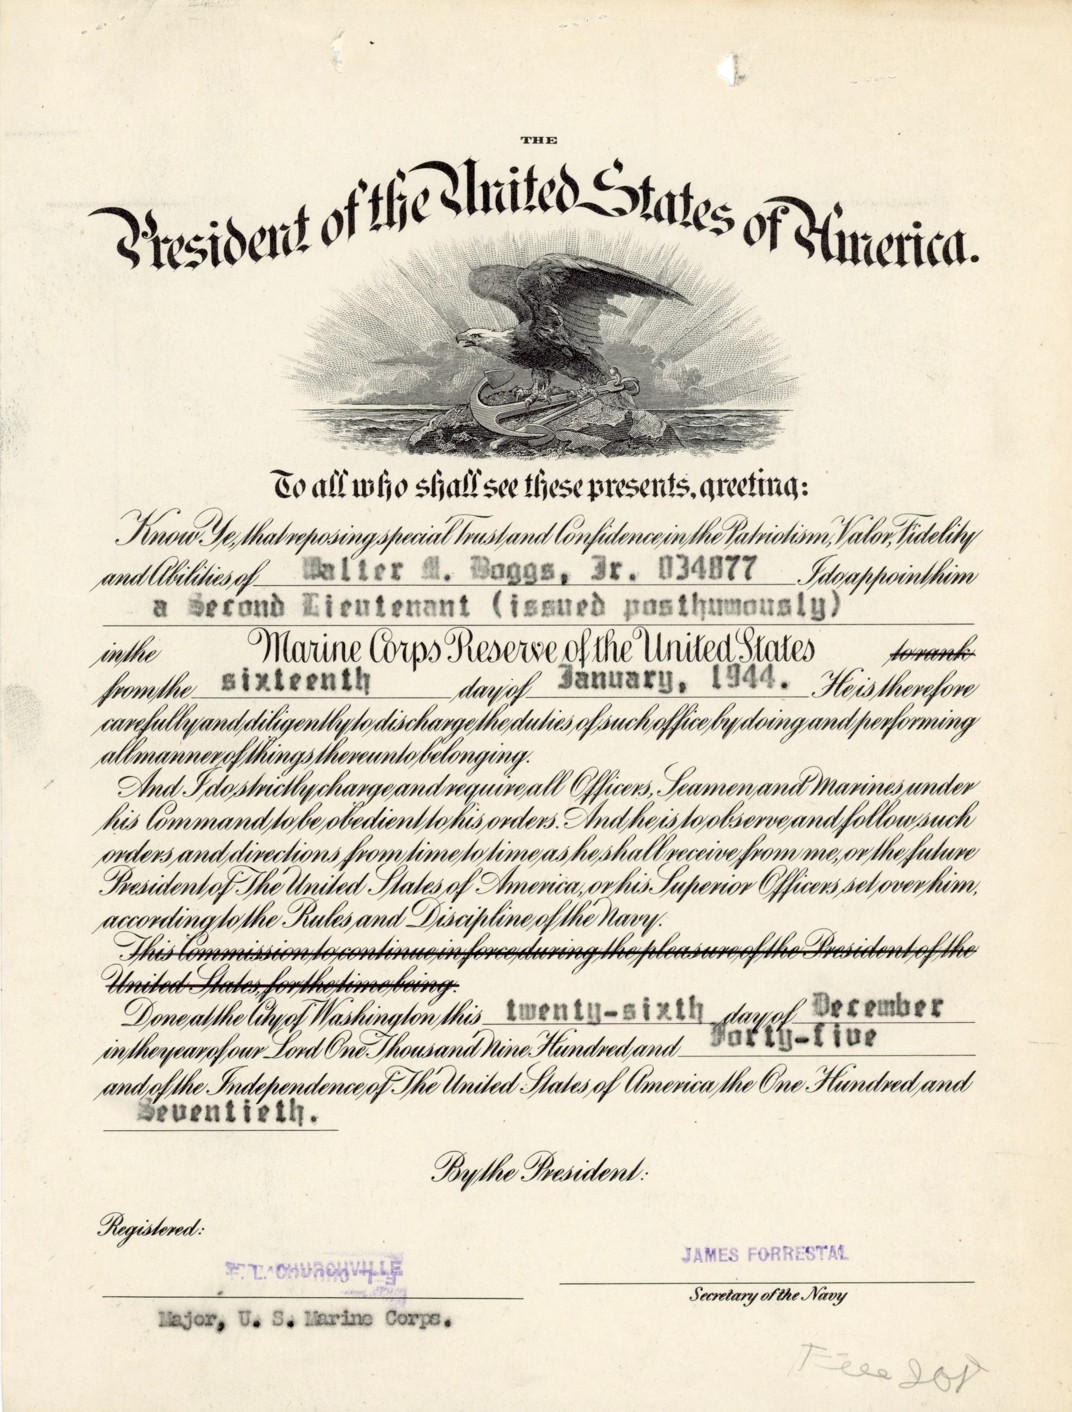 THE
President of the United States of America.
To all who shall see these presents, greeting:
Know Ye, that reposing special Trust and Confidence in the Patriotism, Valor, Fidelity
and Abilities of Walter M. Boggs, Jr. 034877 I do appoint him
a Second Lieutenant (issued posthumously)
in the Marine Corps Reserve of the United States to rank
from the sixteenth day of January, 1944. He is therefore
carefully and diligently to discharge the duties of such office by doing and performing
all manner of things thereunto belonging.
And I do strictly charge and require all Officers, Seamen and Marines under
his Command to be obedient to his orders. And he is to observe and follow such
orders and directions from time to time as he shall receive from me, or the future
President of The United States of America, or his Superior Officers set over him,
according to the Rules and Discipline of the Navy.
This Commission to continue in force during the pleasure of the President of the
United States, for the time being.
Done at the City of Washington this twenty-sixth day of December
in the year of our Lord One Thousand Nine Hundred and Forty-five
and of the Independence of The United States of America the One Hundred and
Seventieth.
By the President:
Registered:
JAMES FORRESTAL
CHURCHVILLE
Secretary of the Navy
Major, U. S. Marine Corps.